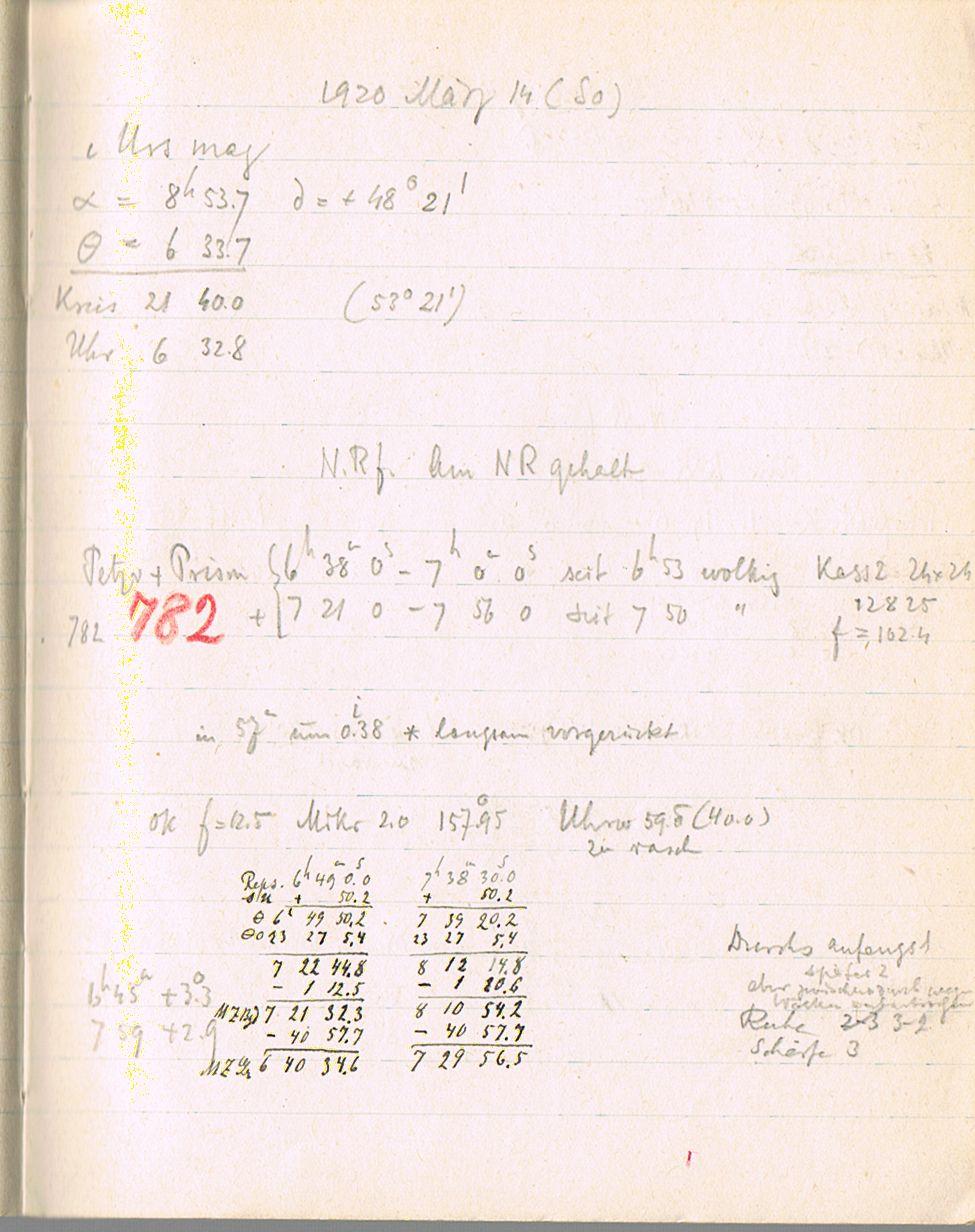 1920 März 14 (So)
ι Urs maj
α = 8h 53.7 δ = + 48° 21'
θ = 6 33.7
Kreis 21 40.0 (53° 21')
Uhr 6 32.8
N.R.f. Am NR gehalt
Petzv + Prism {6h 38m 0s – 7h 0m 0s seit 6h 53 wolkig Kass 2 24x24
782 782 + [7 21 0 – 7 56 0 seit 7 50 " 12825
f = 102.4
in 57m um 0.38 * langsam vorgerückt
ok f=12.5 Mikr 2.0 157.°95 Uhrw 59.5 (40.0)
zu rasch
Reps. 6h 49m 0.0s 7h 38m 30.0s
su + 50.2 + 50.2
θ 6h 49 50.2 7 39 20.2
θ0 23 27 5.4 23 27 5.4
7 22 44.8 8 12 14.8
– 1 12.5 – 1 20.6
MZ 7 21 32.3 8 10 54.2
– 40 57.7 – 40 57.7
MZGr 6 40 34.6 7 29 56.5
6h 45m + 3.°3
7 59 + 2.9
Durchs anfangs 1
später 2
aber zwischendurch wegen
Wolken unterbrochen
Ruhe 2-3 3-2
Schärfe 3